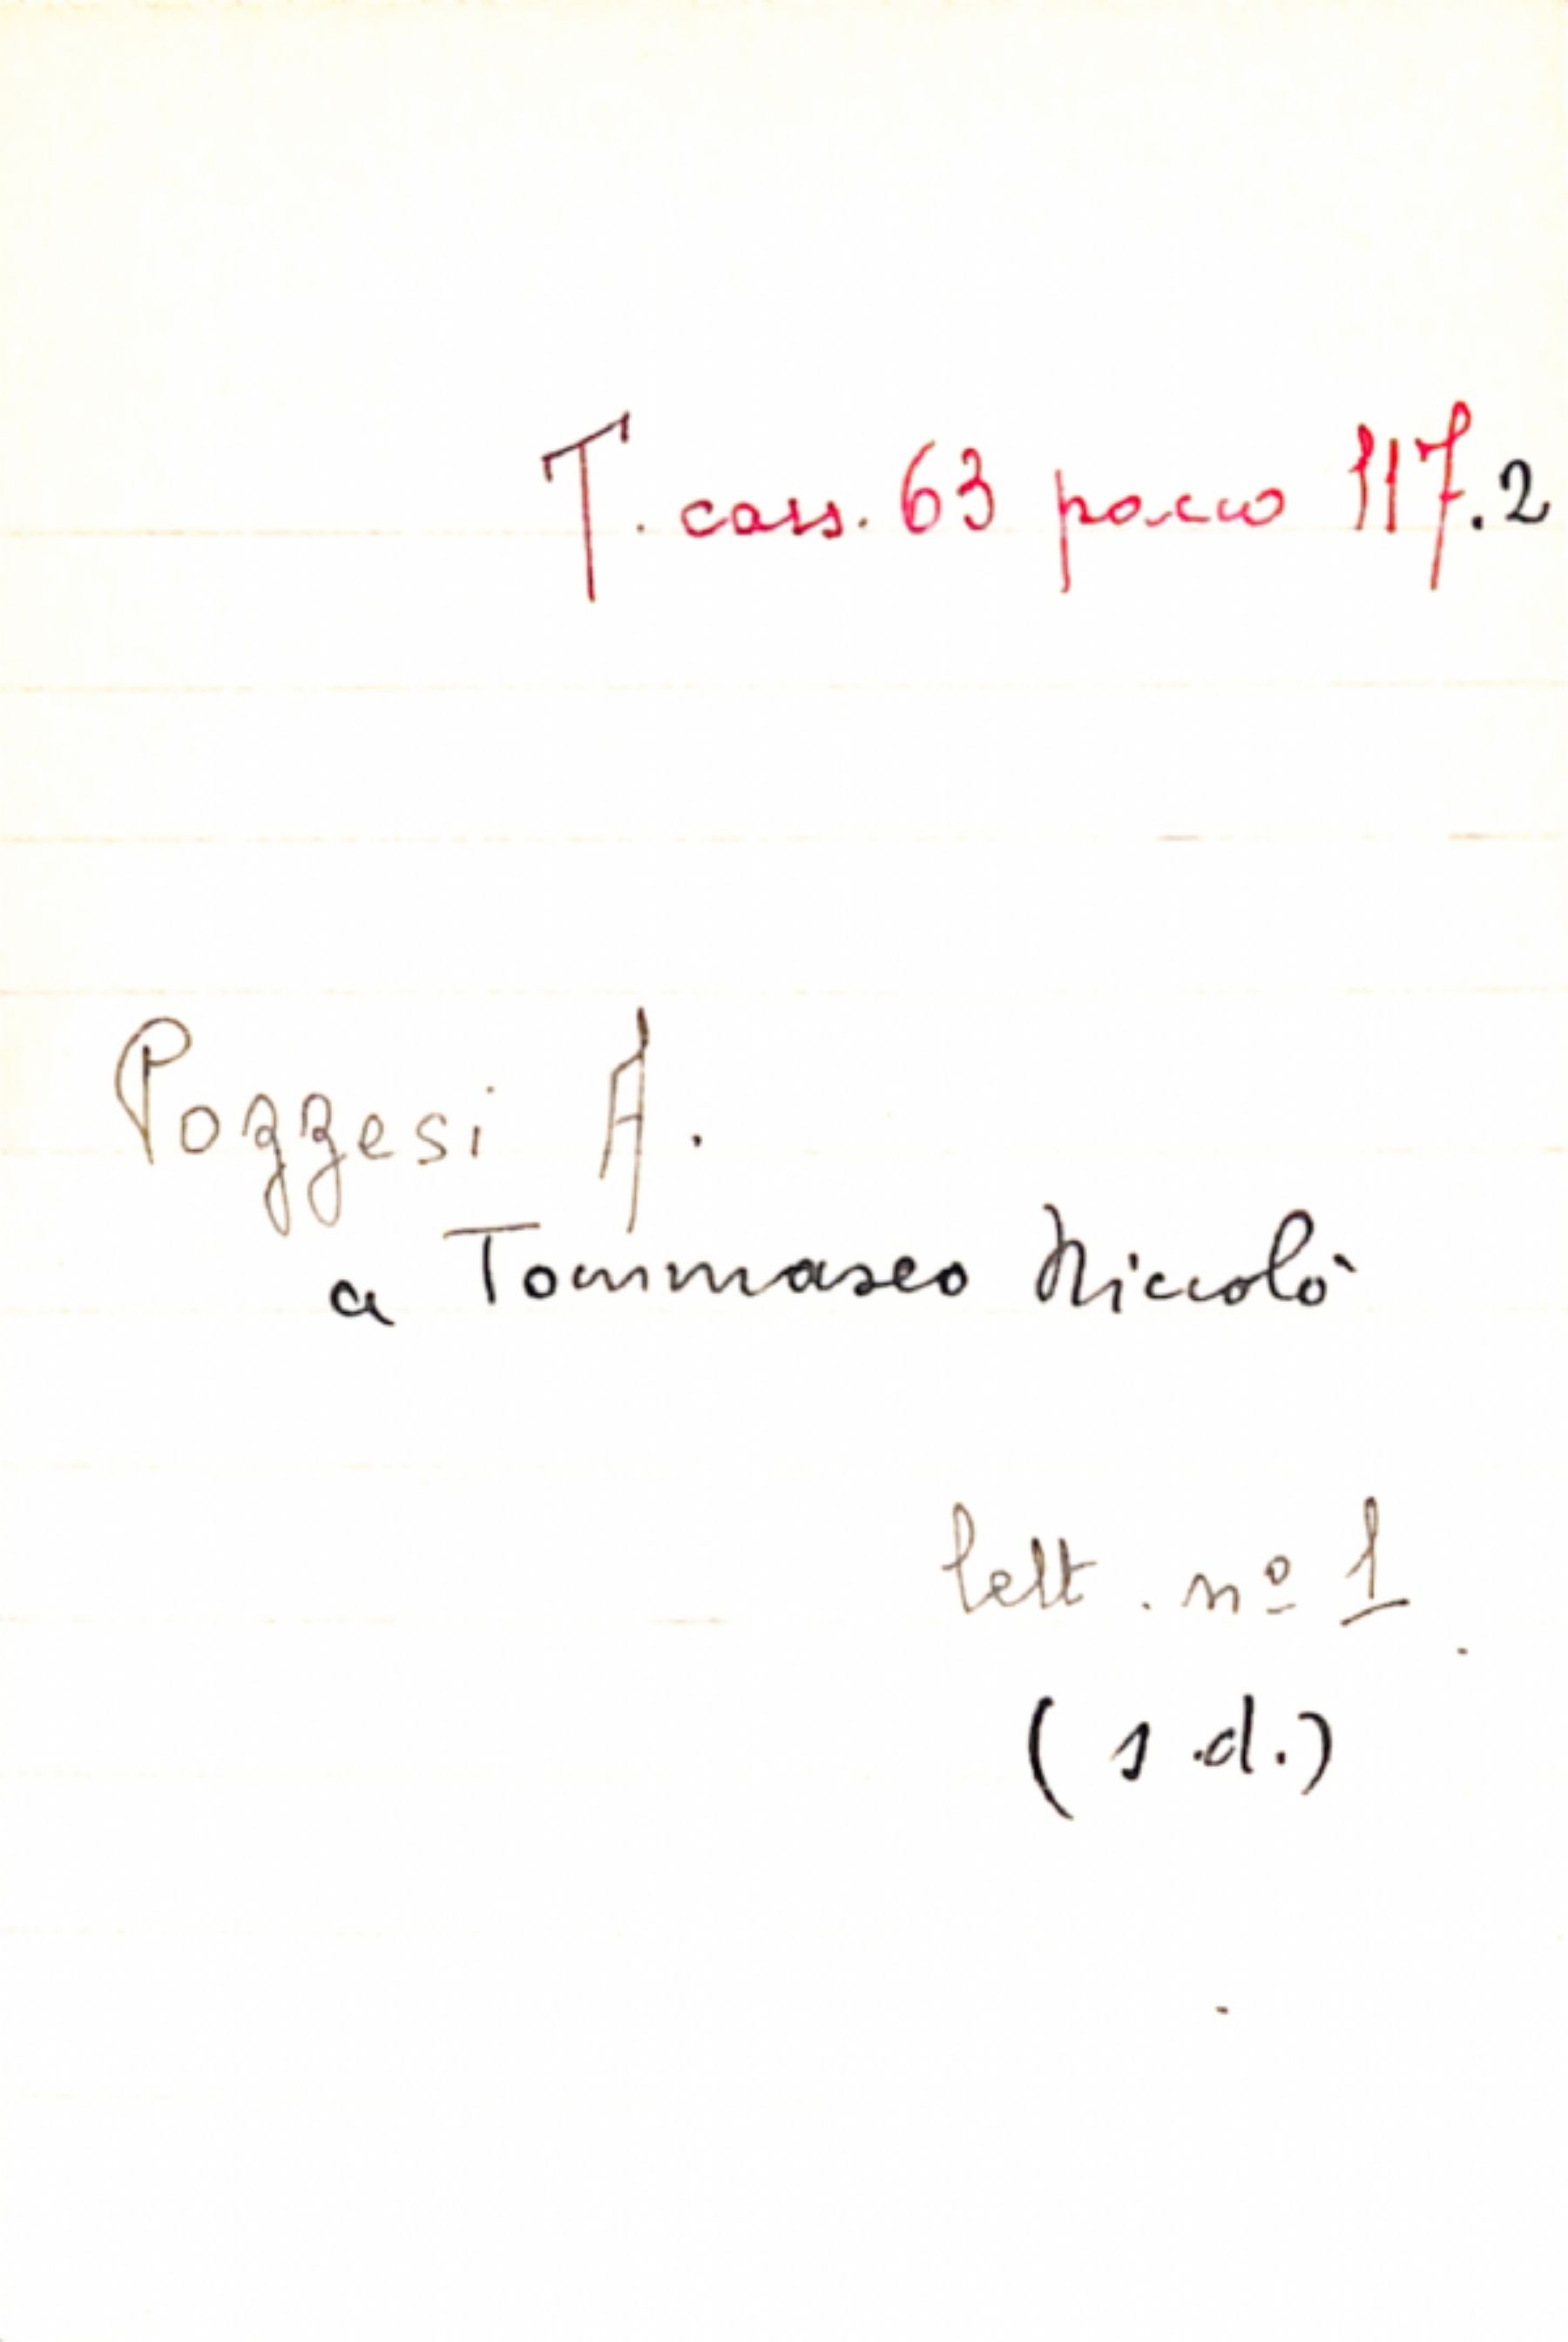 T. cass. 63 pacco 117.2
Pozzesi A.
a Tommaseo Niccolò
lett. nº 1
(s.d.)